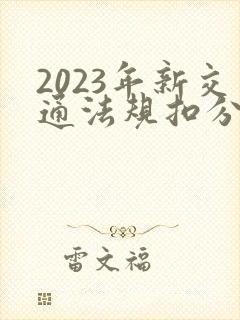 2023年新交
通法规扣分
雷文福